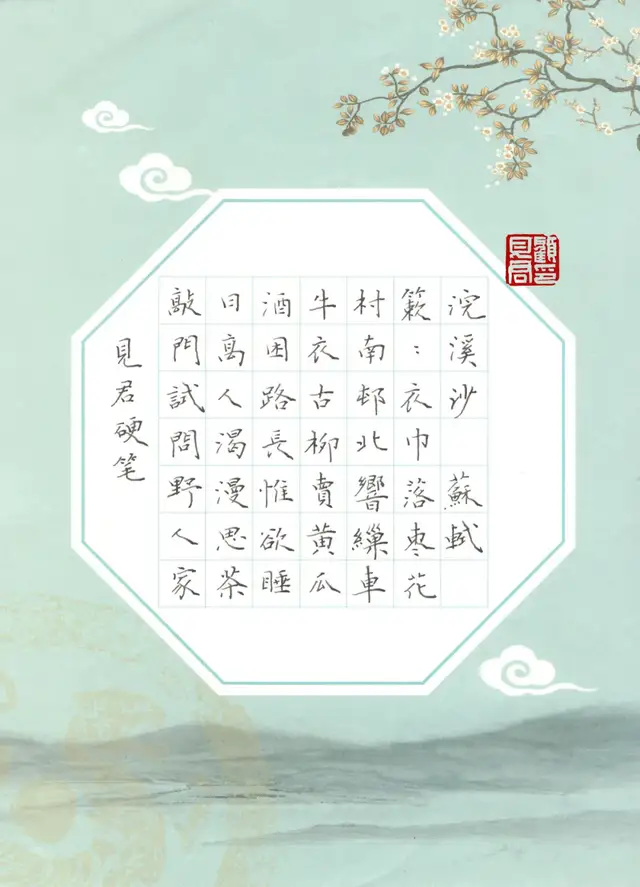 浣溪沙 蘇軾
簌：衣巾落枣花
村南邨北響繅車
牛衣古柳賣黄瓜
酒困路長惟欲睡
日高人渴漫思茶
敲門試問野人家
見君硬笔
顧見君印